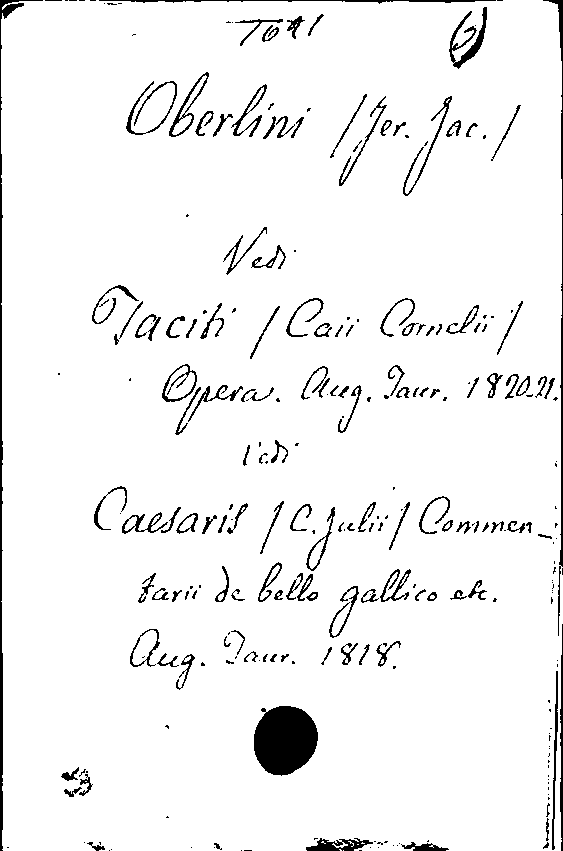 Oberlini / Jer. Jac. /
Vedi
Taciti / Caii Cornelii /
Opera. Aug. Taur. 1820-21.
Vedi
Caesaris / C. Julii / Commen-
tarii de bello gallico etc.
Aug. Taur. 1818.